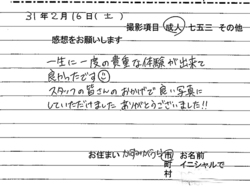 31年2月16日(土)
撮影項目 成人 七五三 その他
感想をお願いします
一生に一度の貴重な体験が出来て
良かったです
スタッフの皆さんのおかげで良い写真に
していただけました ありがとうございました!!
お住まい かすみがうら 市 お名前
町 イニシャルで
村